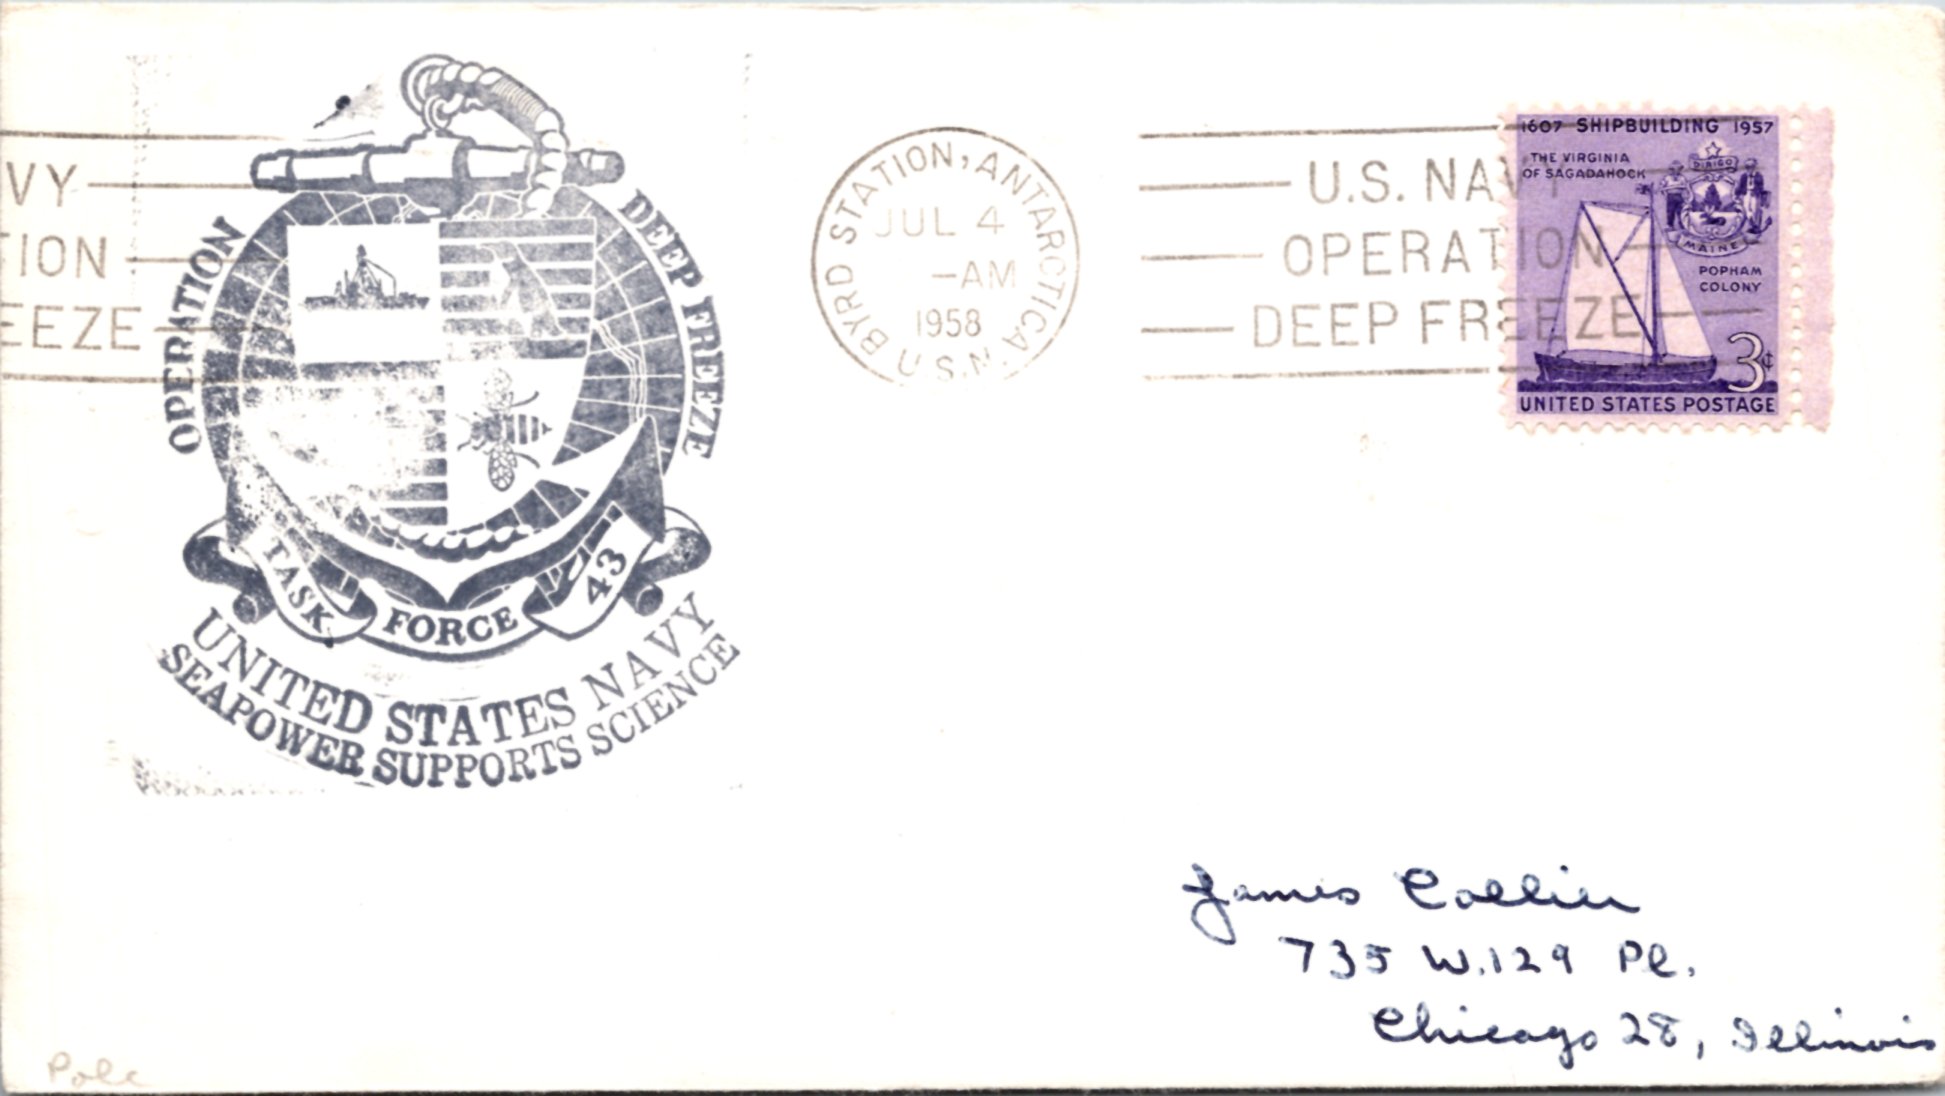 VY
TION
EEZE
OPERATION DEEP FREEZE
TASK FORCE 43
UNITED STATES NAVY
SEAPOWER SUPPORTS SCIENCE
BYRD STATION, ANTARCTICA U.S.N.
JUL 4
-AM
1958
U.S. NAVY
OPERATION
DEEP FREEZE
1607 SHIPBUILDING 1957
THE VIRGINIA
OF SAGADAHOCK
DIRIGO
MAINE
POPHAM
COLONY
3¢
UNITED STATES POSTAGE
James Collier
735 W. 129 Pl.
Chicago 28, Illinois
Pole